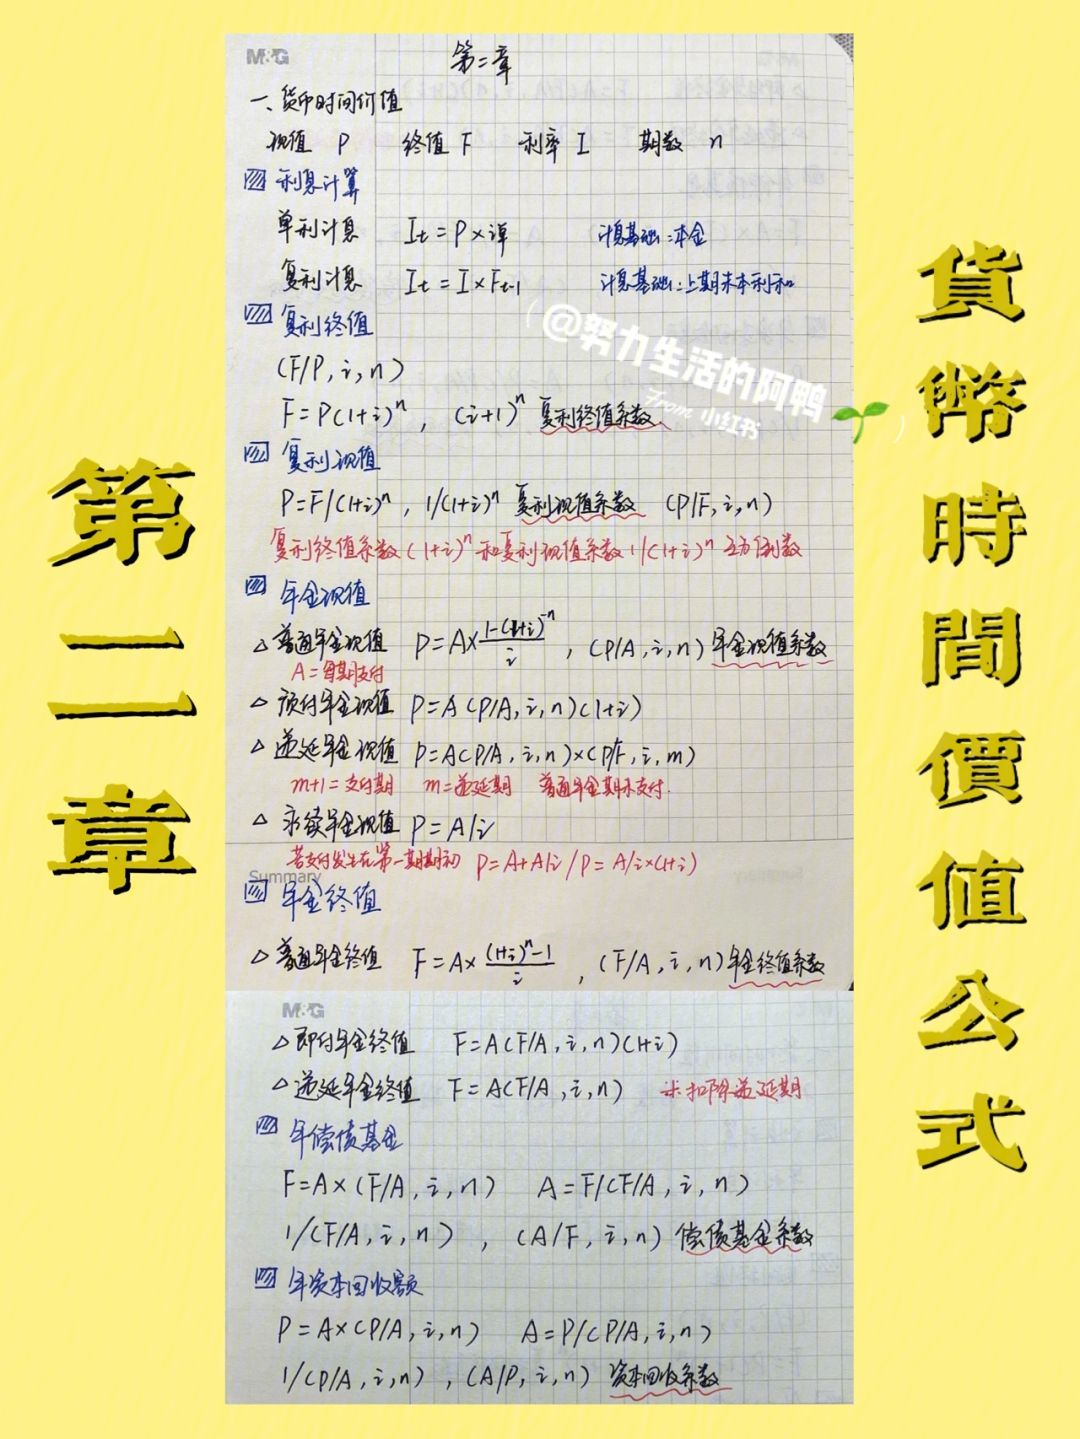 第二章
貨幣時間價值公式
M&G
第二章
一、货币时间价值
现值 P 终值 F 利率 I 期数 n
利息计算
单利计息 It = P × i单 计息基础：本金
复利计息 It = I × Ft-1 计息基础：上期末本利和
复利终值
(F/P, i, n)
F = P(1+i)^n , (i+1)^n 复利终值系数
@努力生活的阿鸭
From 小红书
复利现值
P = F/(1+i)^n , 1/(1+i)^n 复利现值系数 (P/F, i, n)
复利终值系数(1+i)^n 和复利现值系数 1/(1+i)^n 互为倒数
年金现值
△ 普通年金现值 P = A× 1-(1+i)^-n / i , (P/A, i, n) 年金现值系数
A = 每期支付
△ 预付年金现值 P = A(P/A, i, n)(1+i)
△ 递延年金现值 P = A(P/A, i, n)×(P/F, i, m)
m+1 = 支付期 m = 递延期 普通年金期末支付.
△ 永续年金现值 P = A/i
若支付发生在第一期期初 P = A+A/i / P = A/i×(1+i)
Summary
年金终值
△ 普通年金终值 F = A× (1+i)^n-1 / i , (F/A, i, n) 年金终值系数
M&G
△ 即付年金终值 F = A(F/A, i, n)(1+i)
△ 递延年金终值 F = A(F/A, i, n) 扣除递延期
年偿债基金
F = A×(F/A, i, n) A = F/(F/A, i, n)
1/(F/A, i, n) , (A/F, i, n) 偿债基金系数
年资本回收额
P = A×(P/A, i, n) A = P/(P/A, i, n)
1/(P/A, i, n) , (A/P, i, n) 资本回收系数